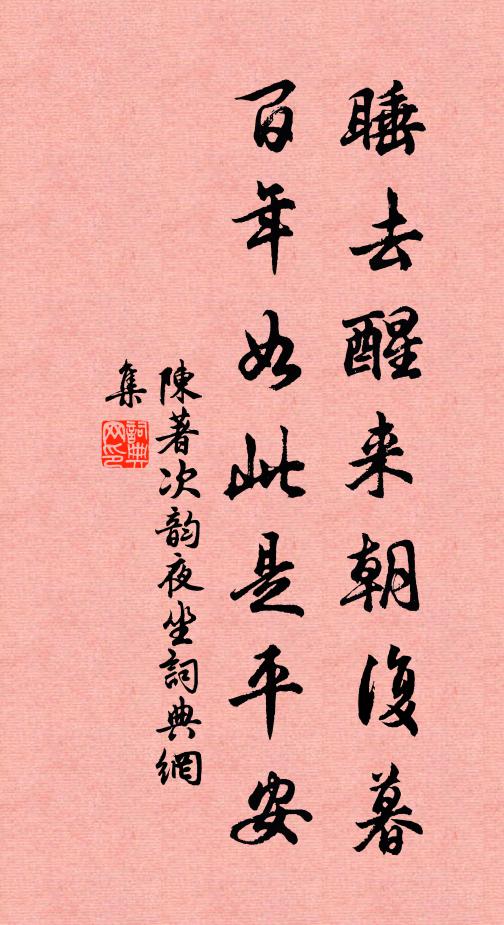 睡去醒来朝復暮
百年如此是平安
陳著次韵夜坐詞典網
集
詞典
网印